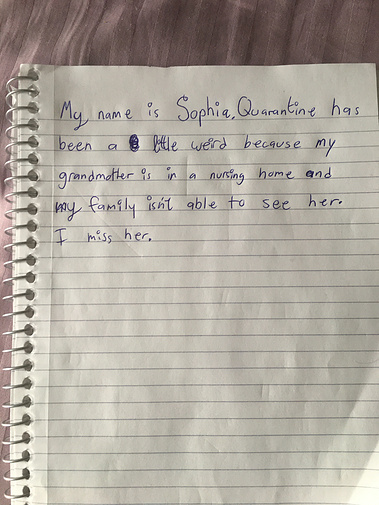 My name is Sophia, Quarantine has
been a little weird because my
grandmother is in a nursing home and
my family isn't able to see her.
I miss her.